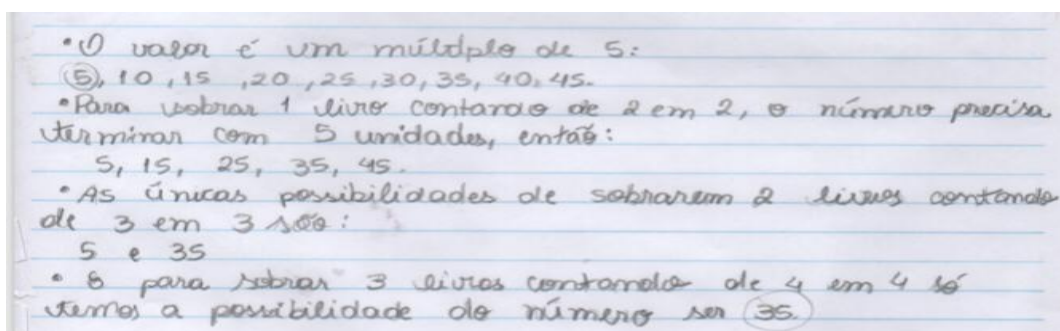 • O valor é um múltiplo de 5:
5, 10, 15, 20, 25, 30, 35, 40, 45.
• Para sobrar 1 livro contando de 2 em 2, o número precisa
terminar com 5 unidades, então:
5, 15, 25, 35, 45.
• As únicas possibilidades de sobrarem 2 livros contando
de 3 em 3 são:
5 e 35
• E para sobrar 3 livros contando de 4 em 4 só
temos a possibilidade do número ser 35.